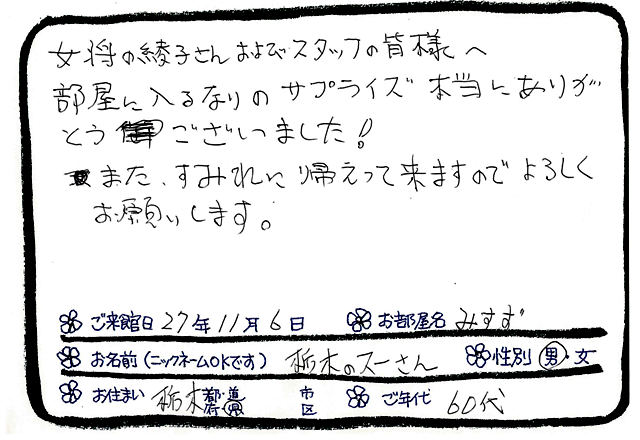 女将の綾子さんおよびスタッフの皆様へ
部屋に入るなりのサプライズ本当にありが
とうございました！
また、すみれに帰えって来ますのでよろしく
お願いします。
ご来館日 27年11月6日 お部屋名 みすず
お名前(ニックネームOKです) 栃木のスーさん 性別 男・女
お住まい 栃木 都・道 府・県 市 区 ご年代 60代